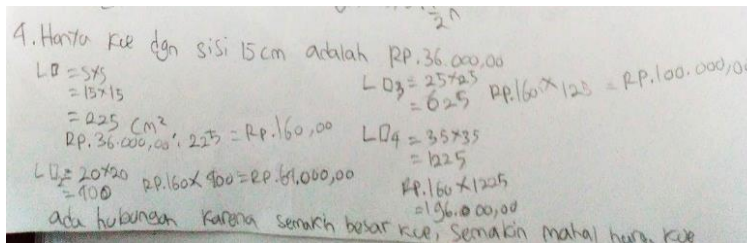 4. Harga kue dgn sisi 15 cm adalah RP.36.000,00
L□ = s×s
= 15×15
= 225 cm²
RP.36.000,00 : 225 = RP.160,00
L□2 = 20×20
= 400 RP.160 × 400 = RP.64.000,00
L□3 = 25×25
= 625 RP.160 × 125 = RP.100.000,0
L□4 = 35×35
= 1225
RP.160 × 1225
= 196.000,00
ada hubungan karena semakin besar kue, semakin mahal harga kue